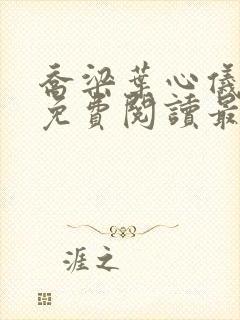 喬梁葉心儀
免費閱讀最
涯之